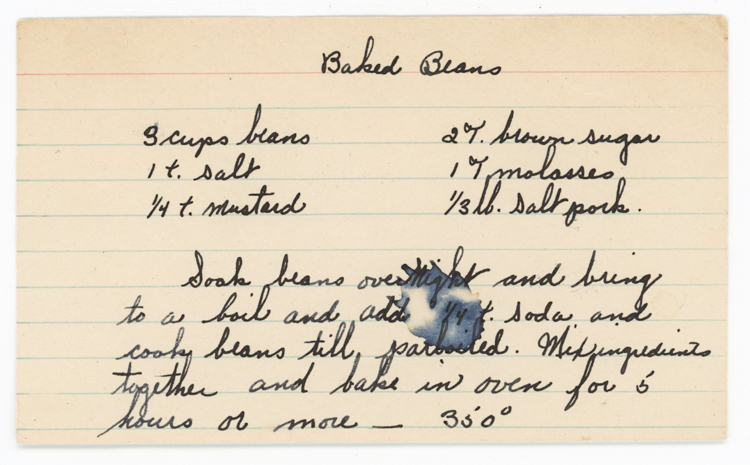 Baked Beans
3 cups beans 2 T. brown sugar
1 t. salt 1 T molasses
1/4 t. mustard 1/3 lb. salt pork.
Soak beans overnight and bring
to a boil and add 1/4 t. soda and
cook beans till parboiled. Mix ingredients
together and bake in oven for 5
hours or more — 350°